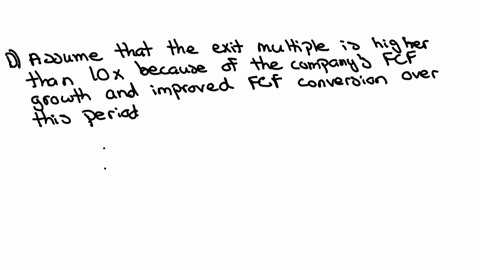 D) Assume that the exit multiple is higher
than 10x because of the company's FCF
growth and improved FCF conversion over
this period